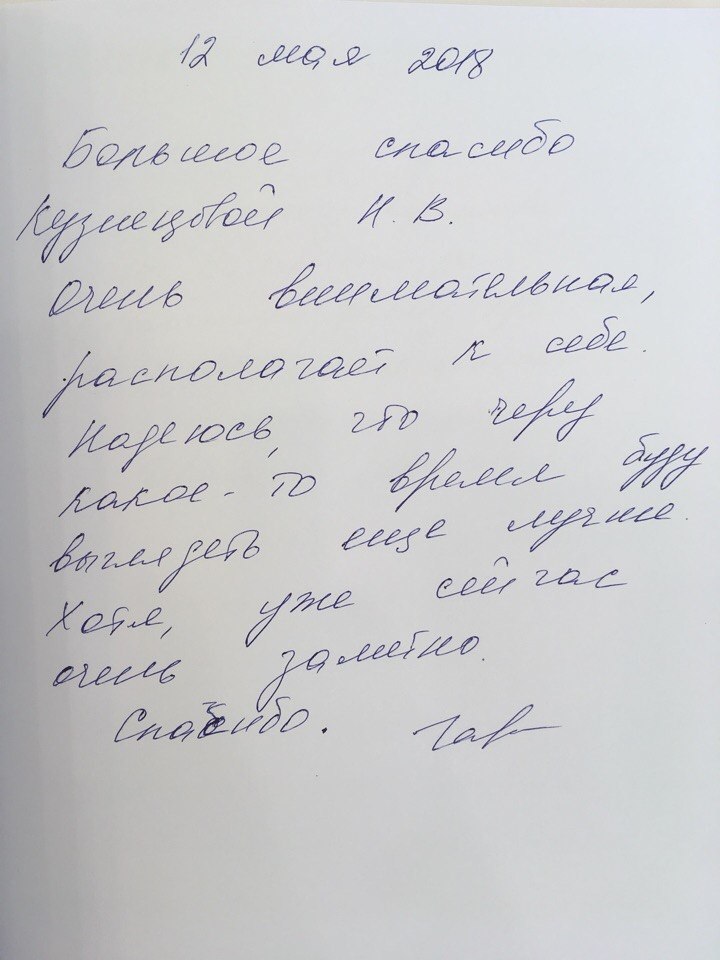 12 мая 2018
Большое спасибо
Кузнецовой Н. В.
Очень внимательная,
располагает к себе.
Надеюсь, что через
какое-то время буду
выглядеть еще лучше.
Хотя, уже сейчас
очень заметно.
Спасибо.